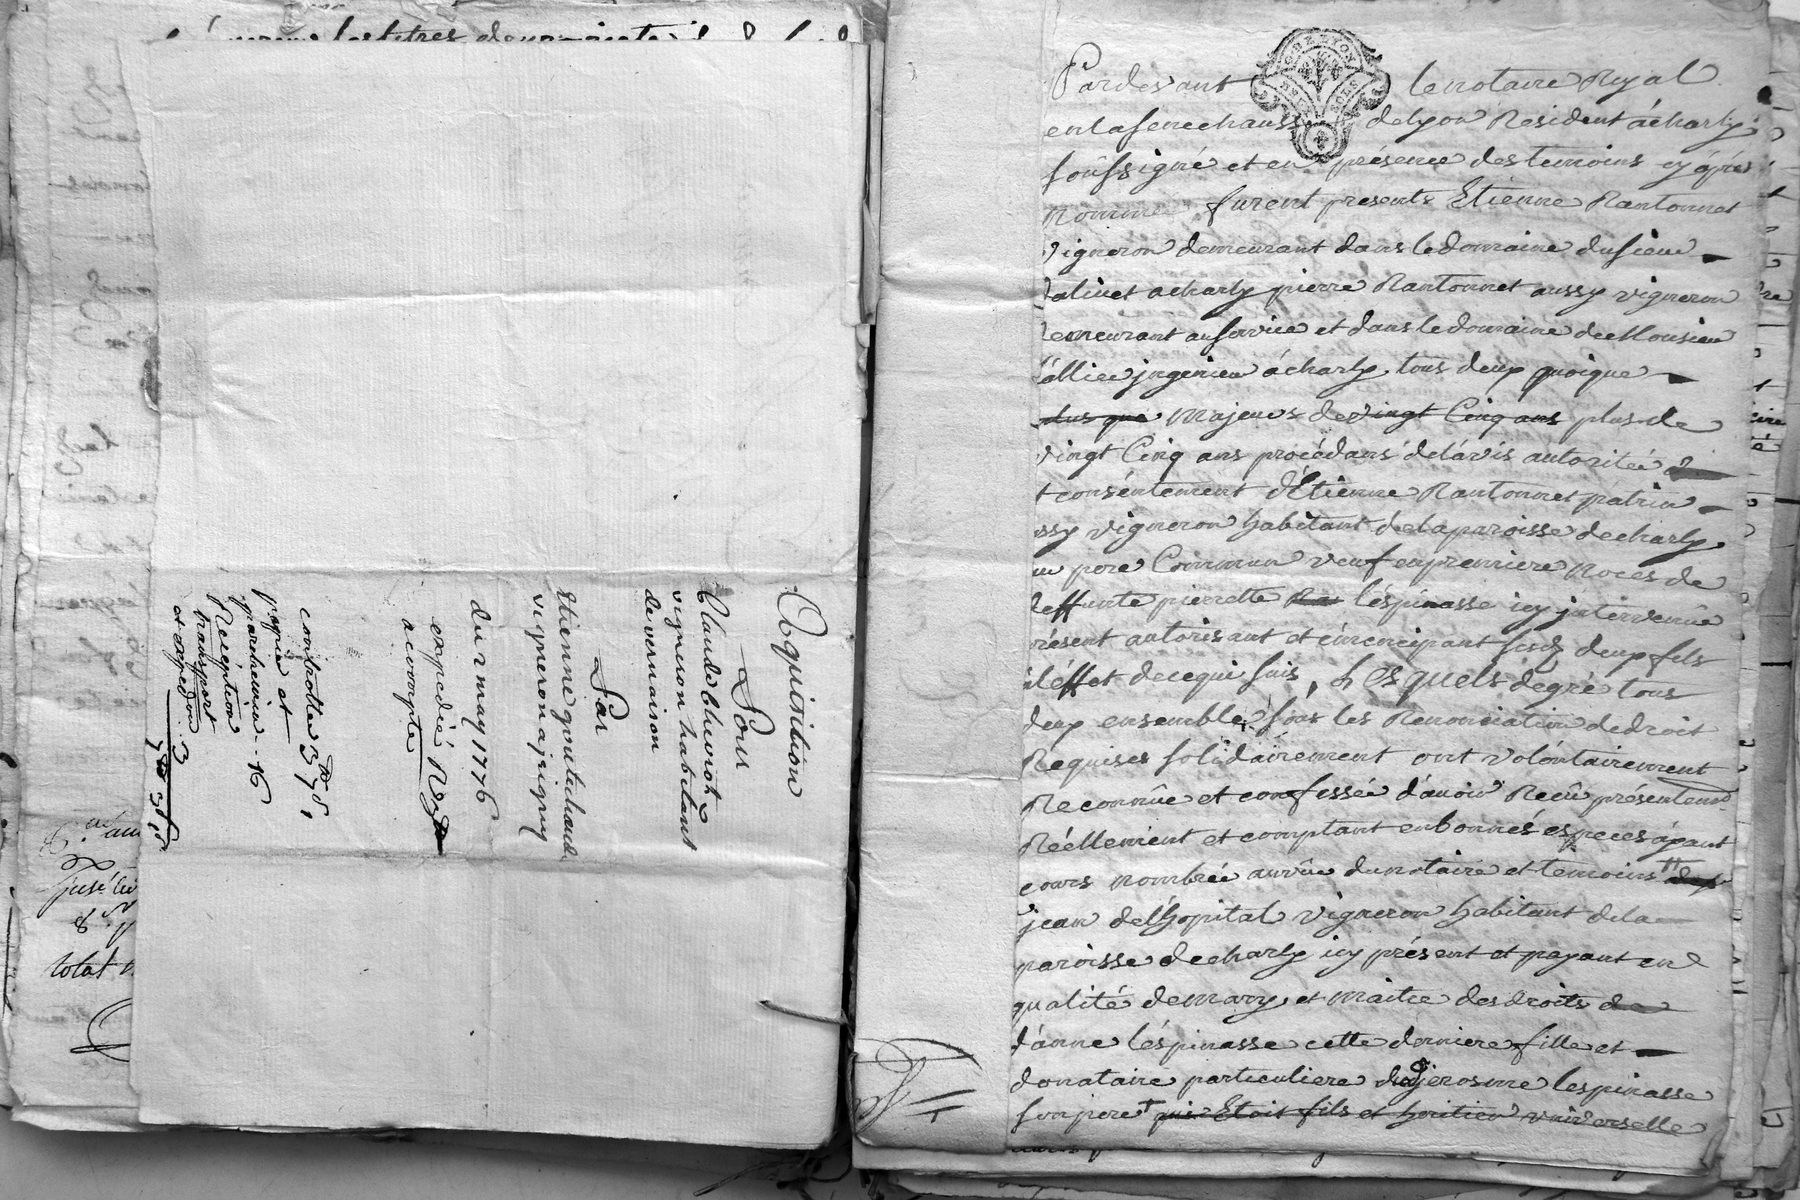 Acquisition
Pour
Claude Chuviot
vigneron habitant
de vernaison
Par
Etienne goutichaud
vigneron a jrigny
du 2 may 1776
expedié
acompte
controlle
papier et
parchemin 16
Reception
transport
et expedon 3
total
Pardevant le notaire Royal
en la senechaussée de lyon Resident à charly
soussigné et en présence des temoins cy àprès
nommé furent presents Etienne Rantonnet
vigneron demeurant dans le domaine du sieur
a charly pierre Rantonnet aussy vigneron
demeurant au service et dans le domaine de Monsieur
jngenieur à charly, tous deux quoique
plus que majeurs de vingt Cinq ans plus de
vingt Cinq ans procédans de l'avis autorité
et consentement d'Etienne Rantonnet
aussy vigneron habitant de la paroisse de charly
pere Commun veuf en premiere noces de
deffunte pierrette l'éspinasse icy jntervenû
présent autorisant et émencipant sesd deux fils
à l'éffet de ce qui suis, Lesquels de gré tous
deux ensemble sous les Renonciation de droit
Requises solidairement ont volontairement
Reconnûe et confessée d'avoir Reçû présentemt
Réellement et comptant en bonnes especes áyant
cours nombrée au vûe du notaire et temoins
jean de l'hopital vigneron habitant de la
paroisse de charly icy présent et payant en
qualité de mary et maitre des droits de
d'anne l'éspinasse cette derniere fille et
donataire particuliere de jerosme lespinasse
son pere qui Etoit fils et héritier universelle